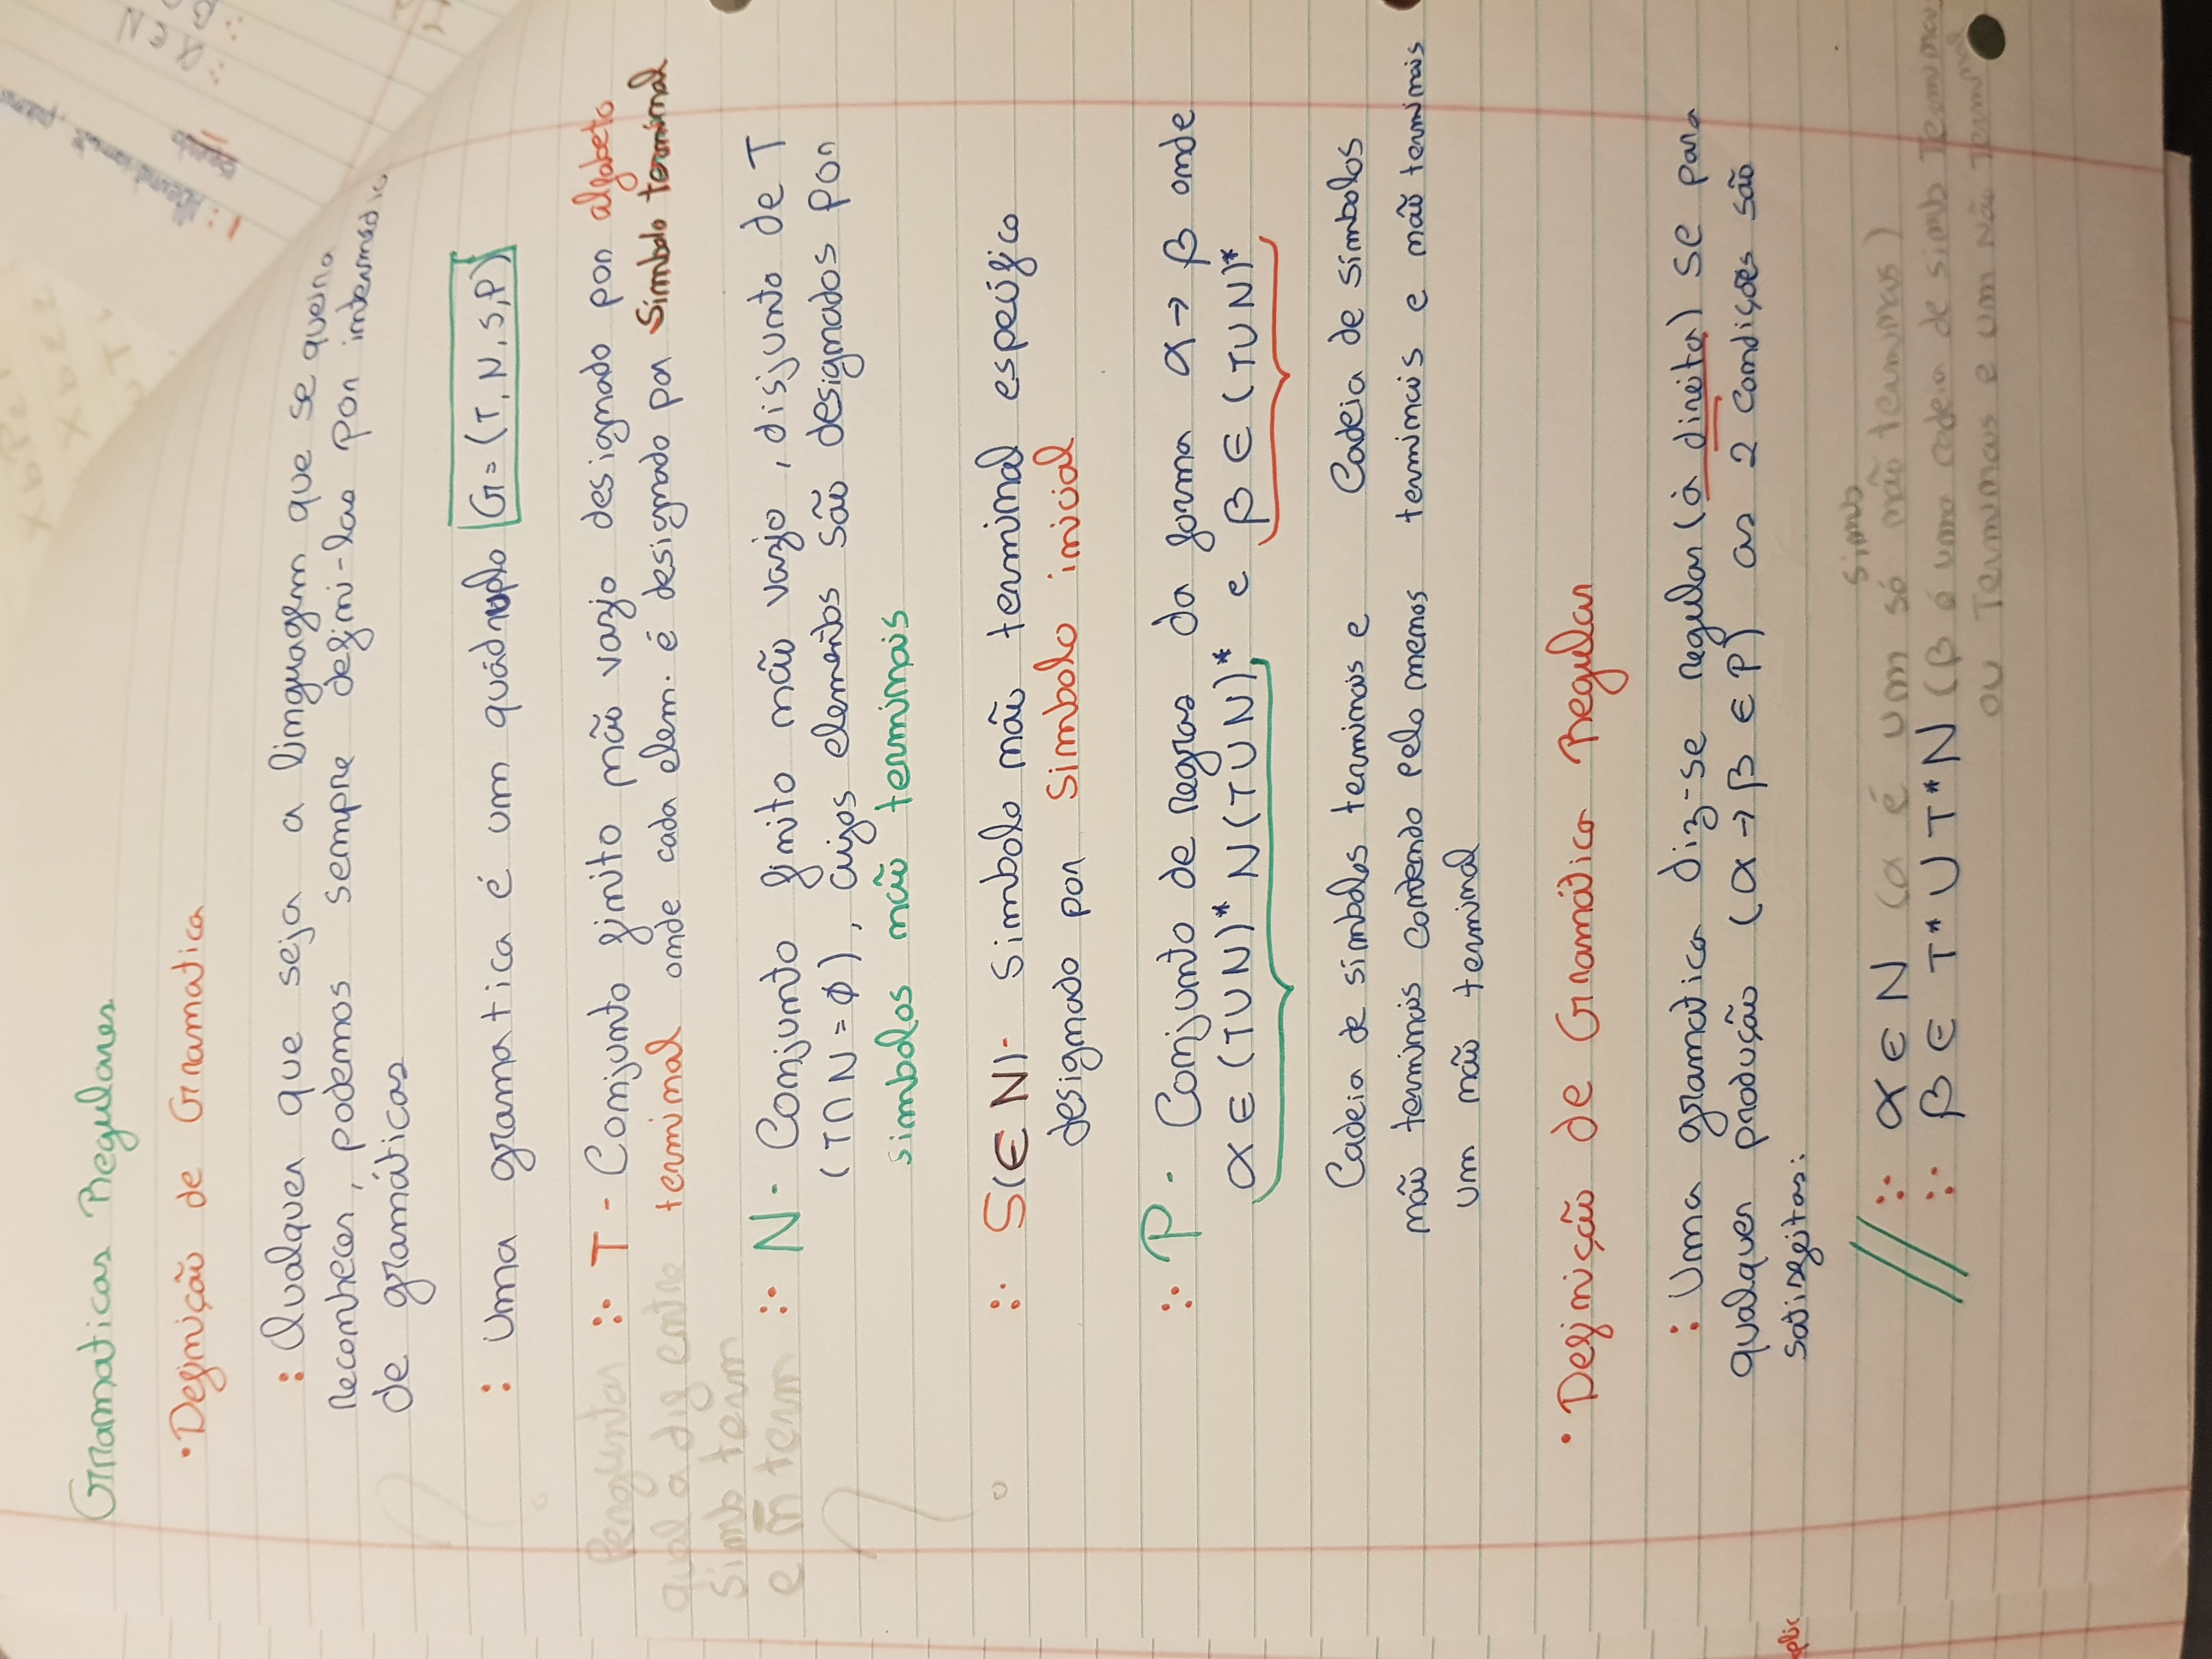 Gramaticas Regulares
• Definição de Gramatica
: Qualquer que seja a linguagem que se queira
reconhecer, podemos sempre defini-las por intermédio
de gramáticas
: Uma gramatica é um quádruplo G = (T, N, S, P)
Perguntar
qual a dif entre
simb term
e ñ term
?
:· T - Conjunto finito não vazio designado por alfabeto
terminal onde cada elem. é designado por Simbolo terminal
:· N - Conjunto finito não vazio, disjunto de T
(T∩N = ∅), cujos elementos são designados por
simbolos não terminais
:· S(∈ N) - Simbolo não terminal específico
designado por Simbolo inicial
:· P - Conjunto de regras da forma α → β onde
α ∈ (T∪N)* N (T∪N)* e β ∈ (T∪N)*
Cadeia de símbolos terminais e
não terminais contendo pelo menos
um não terminal
Cadeia de símbolos
terminais e não terminais
• Definição de Gramática Regular
: Uma gramatica diz-se regular (à direita) se para
qualquer produção (α → β ∈ P) as 2 condições são
satisfeitas:
:· α ∈ N (α é um só simb não terminais)
:· β ∈ T* ∪ T*N (β é uma cadeia de simb Terminais
ou Terminais e um Não Terminal